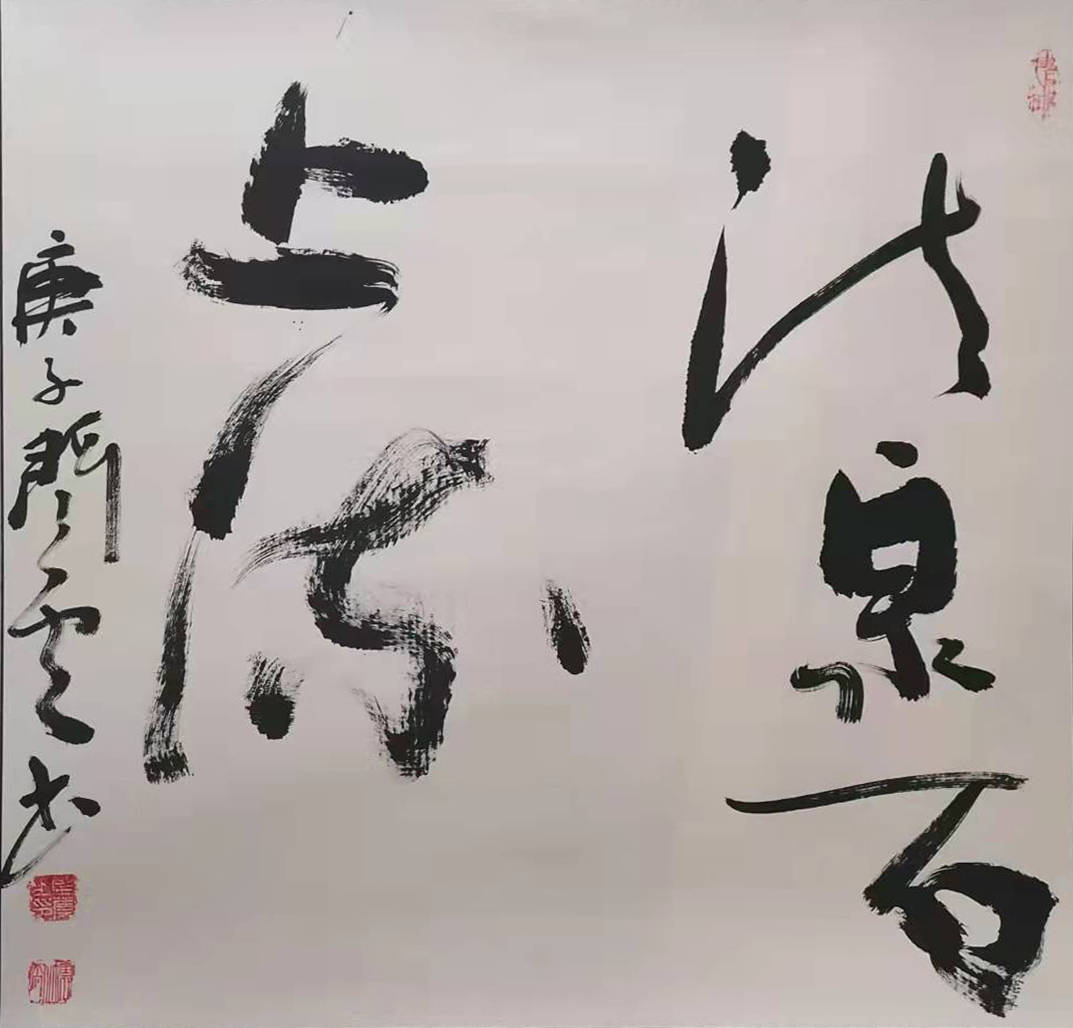 清泉石
上流
庚子 云书